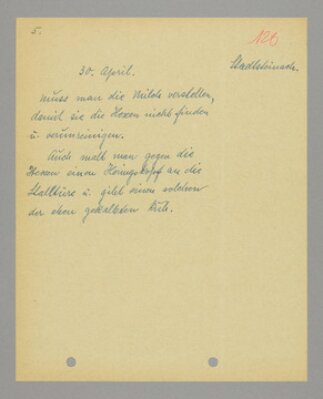 5.
126
Stadtsteinach.
30. April.
Muss man die Milch verstellen,
damit sie die Hexen nicht finden
u. verunreinigen.
Auch malt man gegen die
Hexen einen Heringskopf an die
Stalltüre u. gibt einen solchen
der eben gekalbten Kuh.